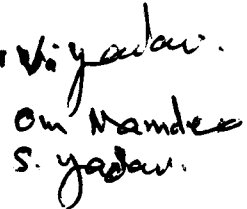 V. Yadav.
Om Namdeo
S. Yadav.